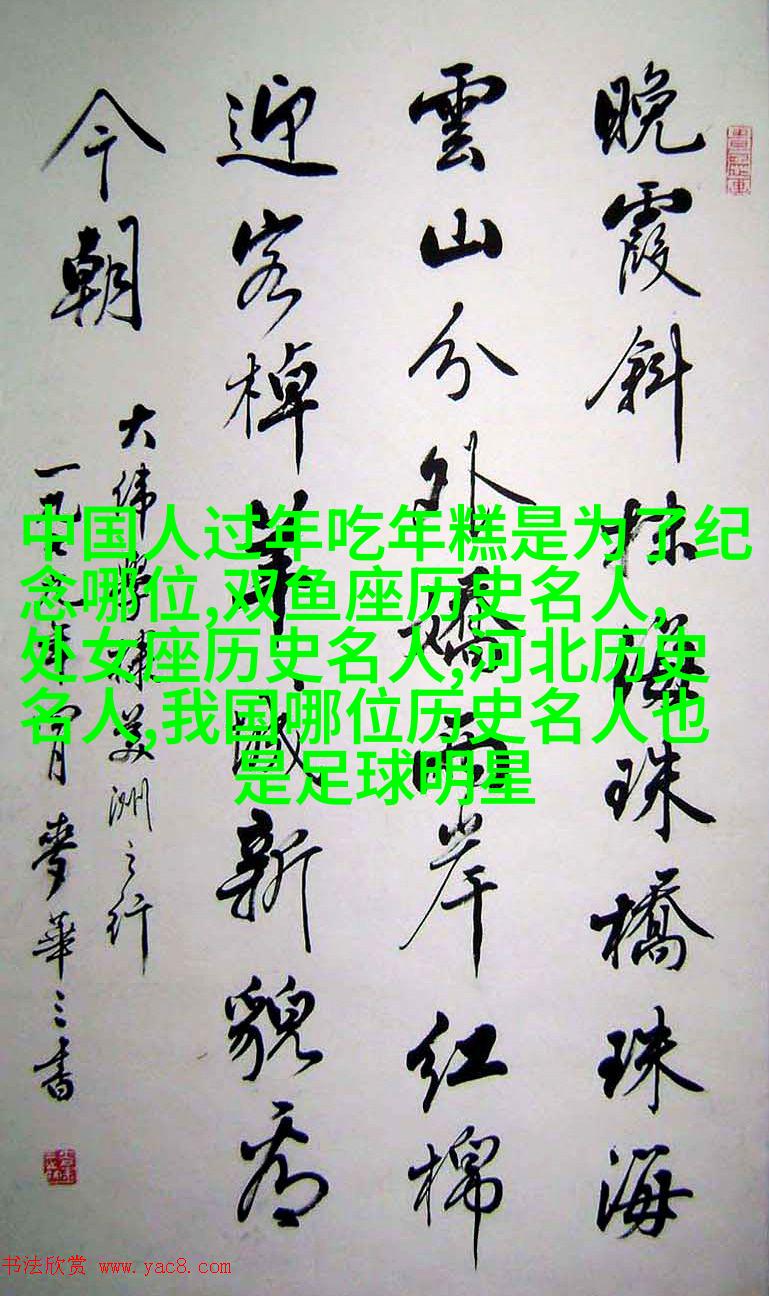 晚霞斜抹海珠橋珠海
雲山分外嬌兩岸红棉
迎客棹羊城新貌看
今朝
大緯學棣美洲之行
一九年月麥華三書
中国人过年吃年糕是为了纪
念哪位,双鱼座历史名人,
处女座历史名人,河北历史
名人,我国哪位历史名人也
是足球明星
书法欣赏 www.yac8.com